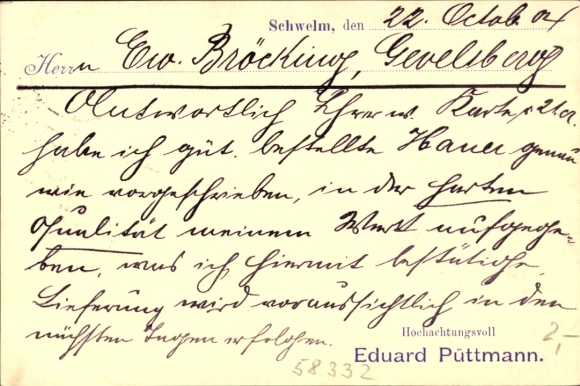 Schwelm, den 22. Octob 04
Herrn Ew. Bröcking, Gevelsberg
Antwortlich Ihrer w. Karte v. 21. ct.
habe ich güt. bestellte Hauer genau
wie vorgeschrieben, in der harten
Qualität meinem Werk aufgege-
ben, was ich hiermit bestätige.
Lieferung wird voraussichtlich in den
nächsten Tagen erfolgen.
Hochachtungsvoll
Eduard Püttmann.
2,-
58332